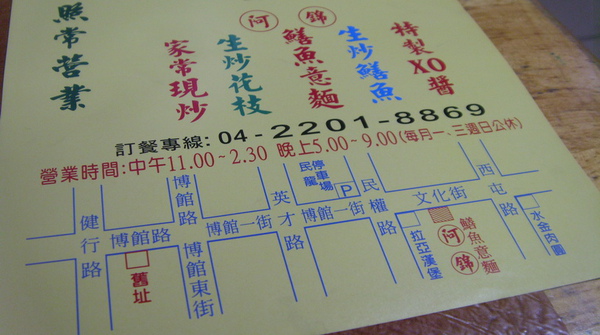 照常營業
阿錦
特製XO醬
生炒鱔魚
鱔魚意麵
生炒花枝
家常現炒
訂餐專線: 04-2201-8869
營業時間:中午11.00~2.30 晚上5.00~9.00(每月一、三週日公休)
健行路
博館路
博館路
舊址
博館東街
博館一街
英才路
民龍停車場
P
博館一街
民權路
文化街
拉亞漢堡
阿錦
鱔魚意麵
西屯路
水金肉圓